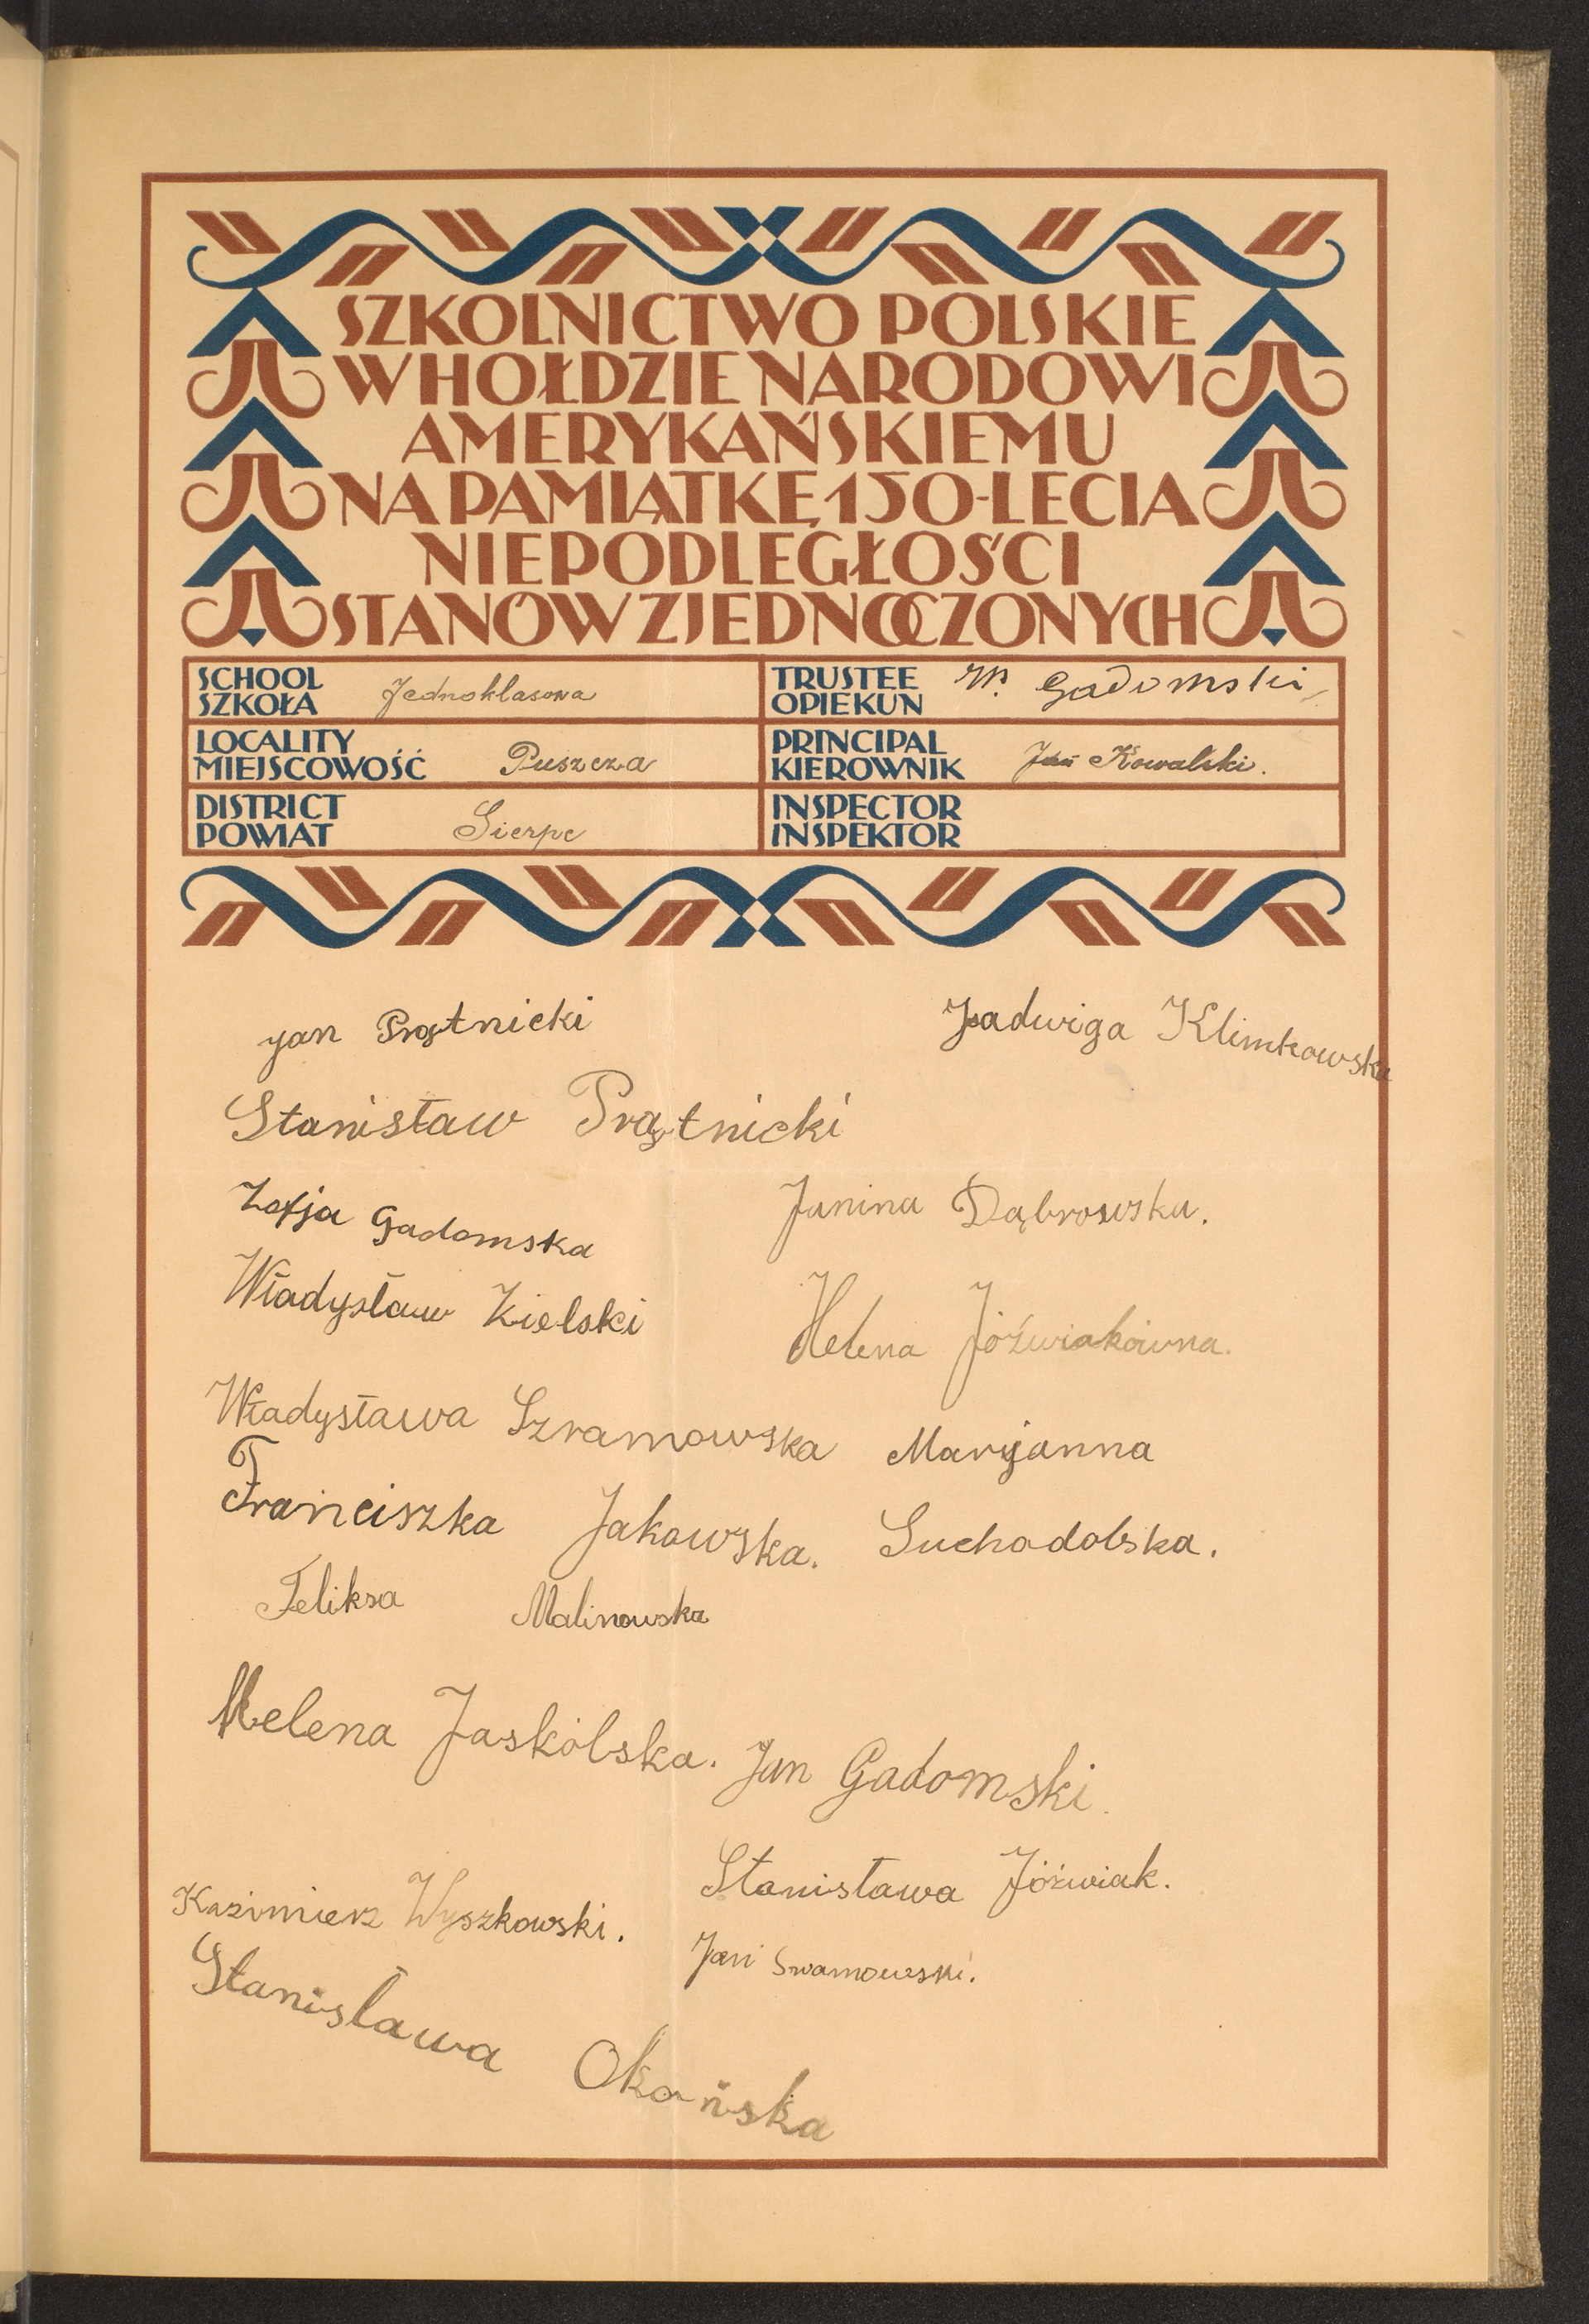 SZKOLNICTWO POLSKIE
W HOŁDZIE NARODOWI
AMERYKAŃSKIEMU
NA PAMIĄTKĘ 150-LECIA
NIEPODLEGŁOŚCI
STANÓW ZJEDNOCZONYCH
SCHOOL
SZKOŁA
Jednoklasowa
TRUSTEE
OPIEKUN
Gadomski
LOCALITY
MIEJSCOWOŚĆ
Puszcza
PRINCIPAL
KIEROWNIK
Jan Kowalski.
DISTRICT
POWIAT
Sierpc
INSPECTOR
INSPEKTOR
Jan Prątnicki
Jadwiga Klimkowska
Stanisław Prątnicki
Zofja Gadomska
Janina Dąbrowska.
Władysław Zielski
Helena Jóźwiakówna.
Władysława Szramowska
Marijanna
Franciszka Jakowska.
Suchodolska.
Feliksa Malinowska
Helena Jaskólska.
Jan Gadomski.
Stanisława Jóźwiak.
Kazimierz Wyszkowski.
Jan
Stanisława Okońska